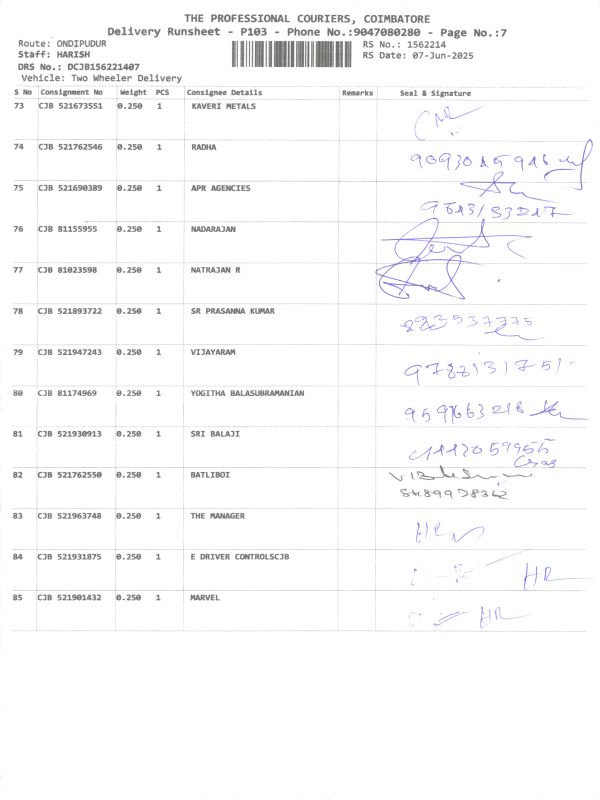 THE PROFESSIONAL COURIERS, COIMBATORE
Delivery Runsheet - P103 - Phone No.:9047080280 - Page No.:7
Route: ONDIPUDUR RS No.: 1562214
Staff: HARISH RS Date: 07-Jun-2025
DRS No.: DCJB156221407
Vehicle: Two Wheeler Delivery
S No Consignment No Weight PCS Consignee Details Remarks Seal & Signature
73 CJB 521673551 0.250 1 KAVERI METALS
74 CJB 521762546 0.250 1 RADHA
75 CJB 521690389 0.250 1 APR AGENCIES
76 CJB 81155955 0.250 1 NADARAJAN
77 CJB 81023598 0.250 1 NATRAJAN R
78 CJB 521893722 0.250 1 SR PRASANNA KUMAR
79 CJB 521947243 0.250 1 VIJAYARAM
80 CJB 81174969 0.250 1 YOGITHA BALASUBRAMANIAN
81 CJB 521930913 0.250 1 SRI BALAJI
82 CJB 521762550 0.250 1 BATLIBOI
83 CJB 521963748 0.250 1 THE MANAGER HR
84 CJB 521931875 0.250 1 E DRIVER CONTROLSCJB HR
85 CJB 521901432 0.250 1 MARVEL HR